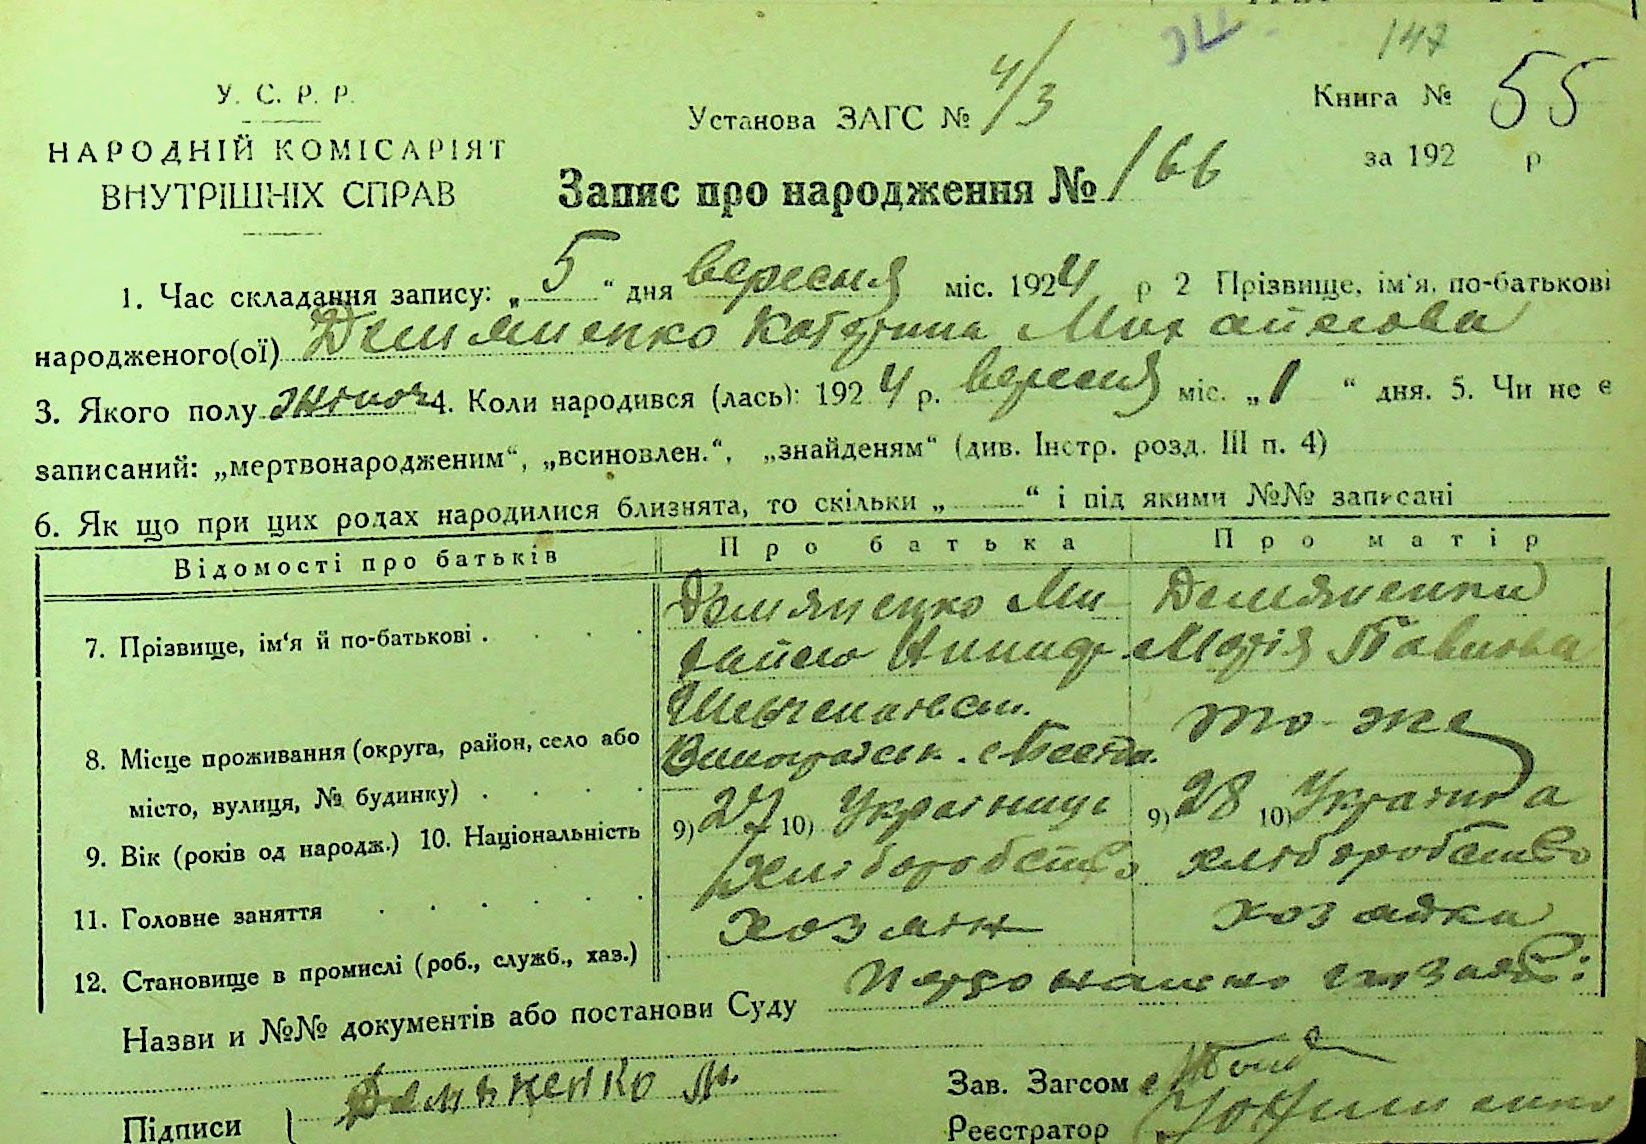 147
У. С. Р. Р.
НАРОДНІЙ КОМІСАРІЯТ
ВНУТРІШНІХ СПРАВ
Установа ЗАГС № 4/3
Книга № 55
за 192 р
Запис про народження № 166
1. Час складання запису: „5“ дня вересня міс. 1924 р 2 Прізвище, ім'я, по-батькові
народженого(ої) Демяненко Катерина Михайлова
3. Якого полу жіноч 4. Коли народився (лась): 1924 р. вересня міс. „1“ дня. 5. Чи не є
записаний: „мертвонародженим“, „всиновлен.“, „знайденям“ (див. Інстр. розд. III п. 4)
6. Як що при цих родах народилися близнята, то скільки „ “ і під якими №№ записані
Відомості про батьків Про батька Про матір
7. Прізвище, ім'я й по-батькові . . . .
Демяненко Ми-
хайло
Демяненко
Марія Павлова
8. Місце проживання (округа, район, село або
місто, вулиця, № будинку) . . . .
то-же
9. Вік (років од народж.) 10. Національність
9) 27 10) Українець
9) 28 10) Українка
11. Головне заняття . . . . . .
хліборобство
хліборобство
12. Становище в промислі (роб., служб., хаз.)
хозяін
хозяйка
Назви и №№ документів або постанови Суду
Підписи { Демяненко М.
Зав. Загсом
Реєстратор